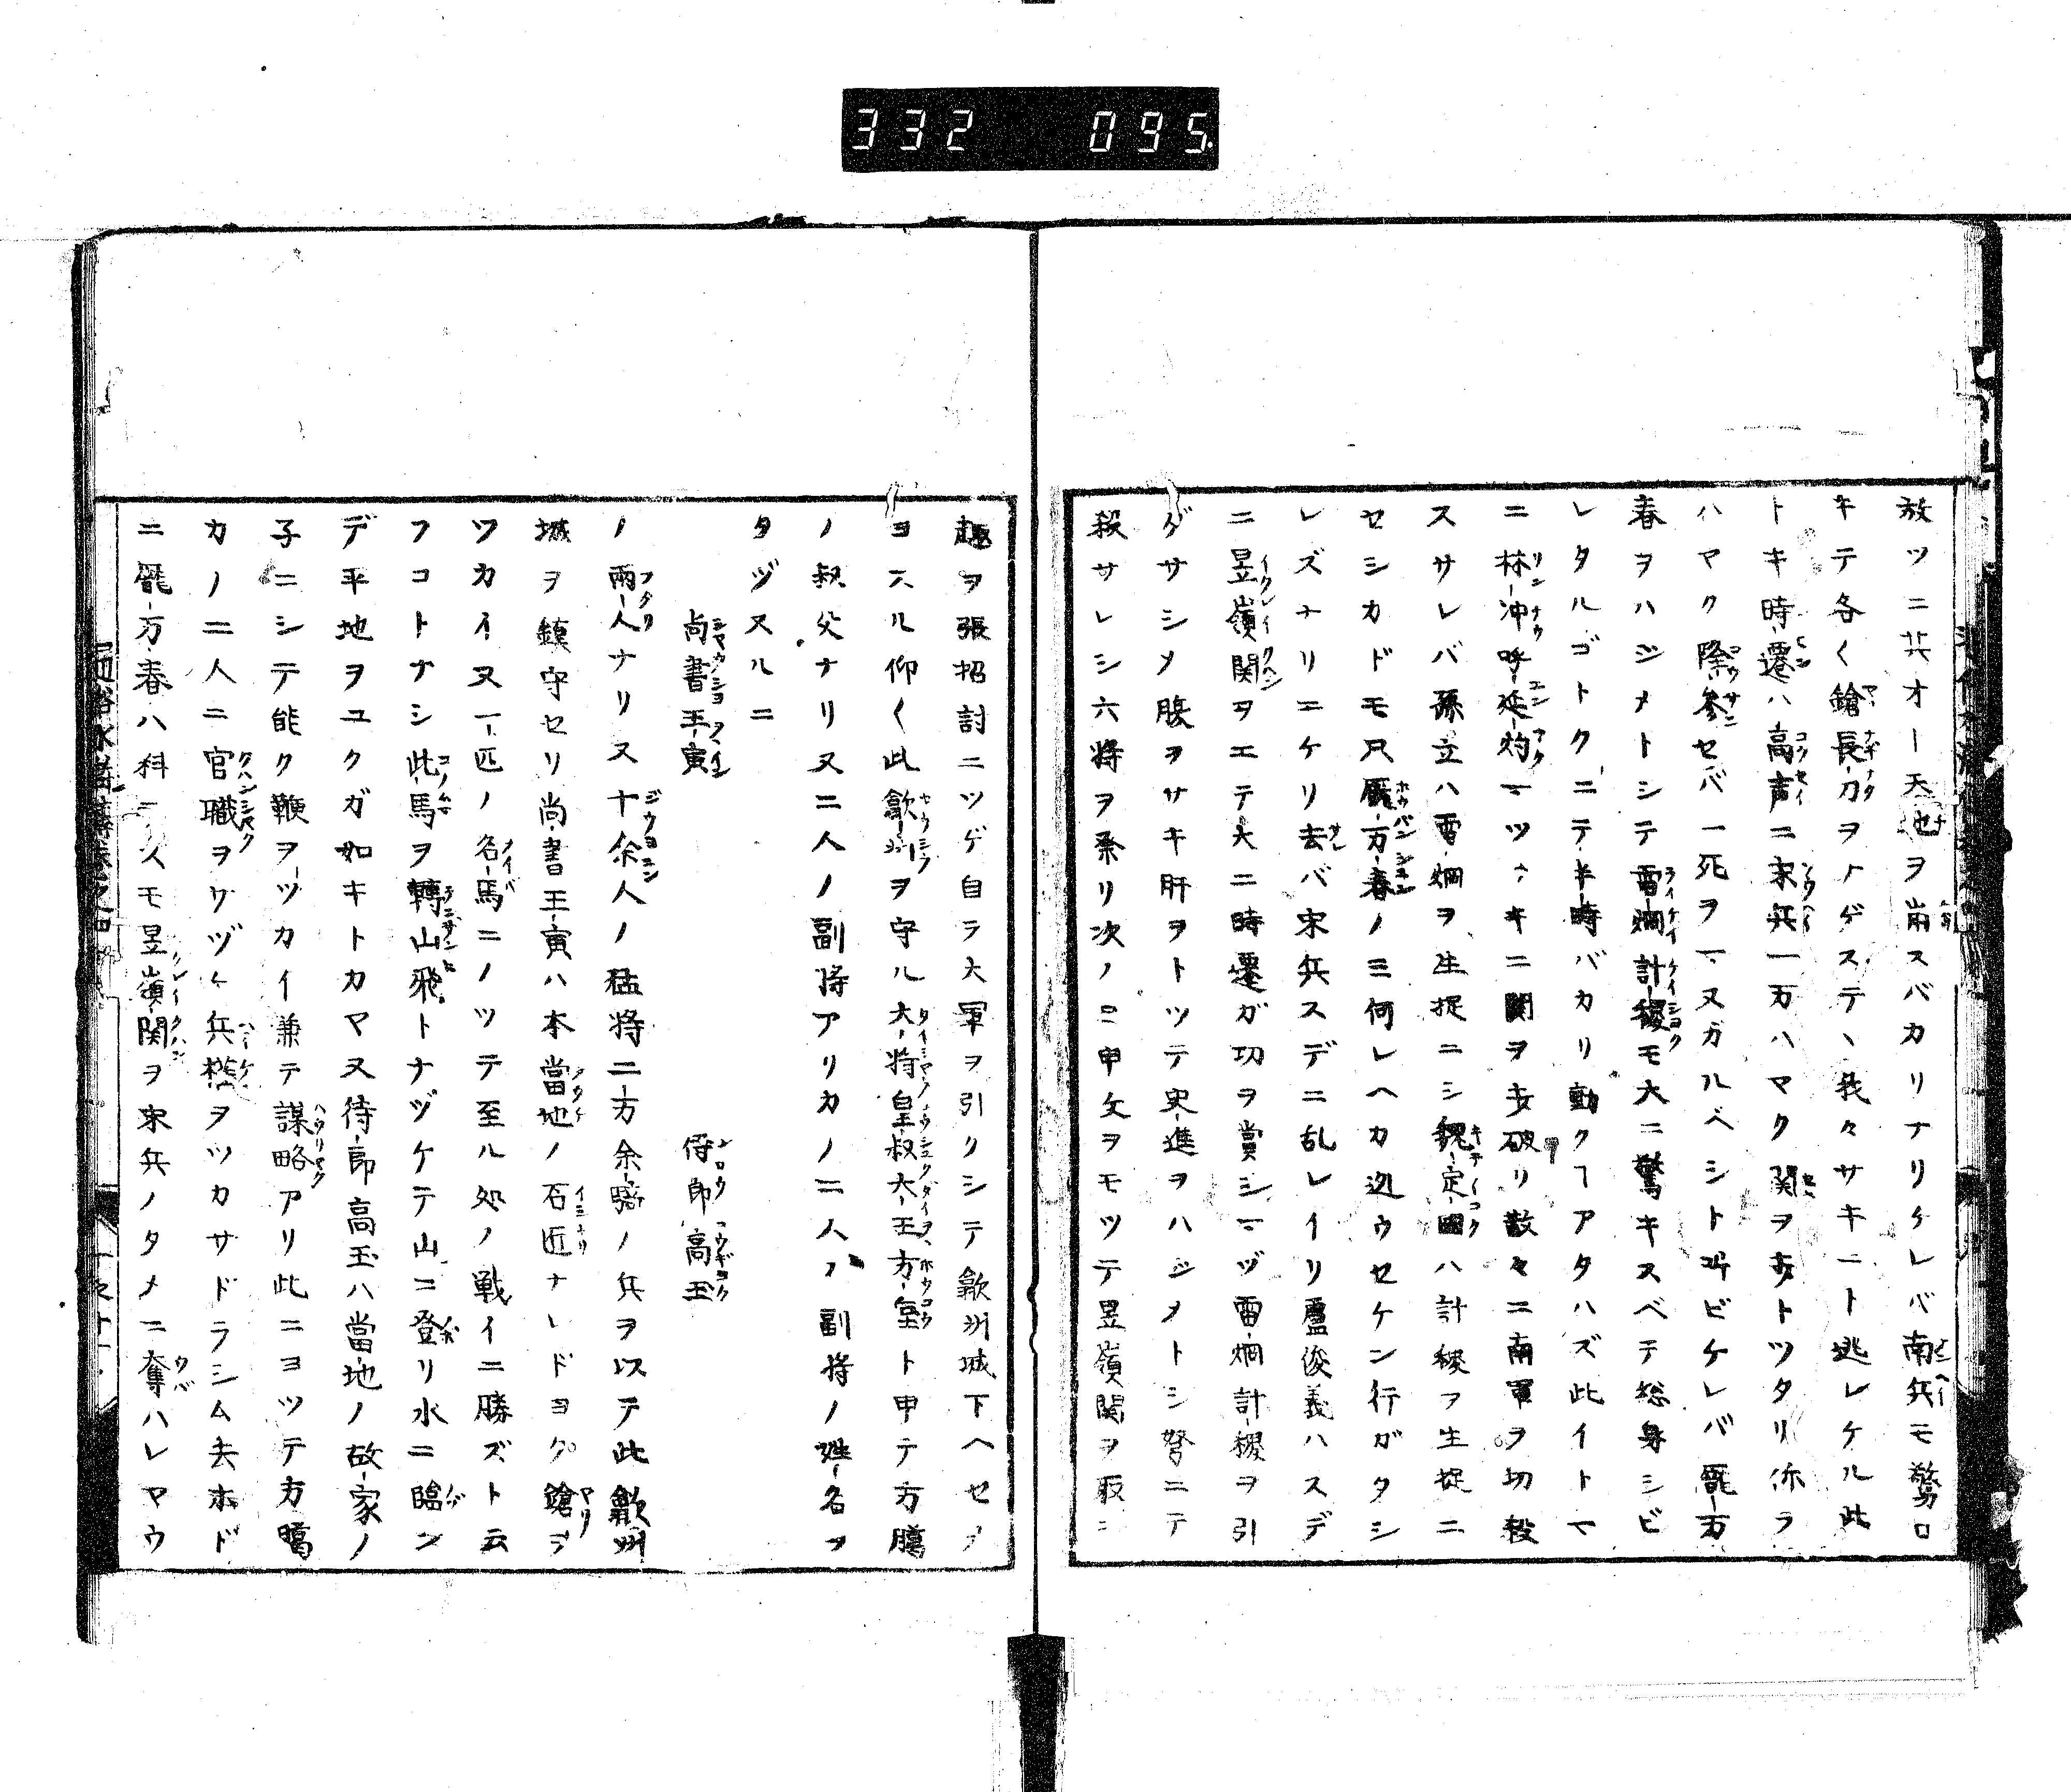 332 095
放ツニ其オー天地ヲ崩スバカリナリケレバ南兵モ驚ロ
キテ各く鎗長刀ヲナゲステ丶我々サキニト逃レケル此
トキ時遷ハ高声ニ宋兵一万ハマク関ヲ奪トツタリ你ラ
ハマク降参セバ一死ヲマヌガルベシト呼ビケレバ龐万
春ヲハジメトシテ雷烱計稷モ大ニ驚キスベテ総身シビ
レタルゴトクニテ半時バカリ動クヿアタハズ此イトマ
ニ林冲呼延灼マツサキニ関ヲ打破リ散々ニ南軍ヲ切殺
スサレバ孫立ハ雷烱ヲ生捉ニシ魏定國ハ計稷ヲ生捉ニ
セシカドモ只龐万春ノミ何レヘカ迯ウセケン行ガタシ
レズナリニケリ去バ宋兵スデニ乱レイリ盧俊義ハスデ
ニ昱嶺関ヲエテ大ニ時遷ガ功ヲ賞シマヅ雷烱計稷ヲ引
ダサシメ腹ヲサキ肝ヲトツテ史進ヲハジメトシ弩ニテ
殺サレシ六将ヲ祭リ次ノ日申文ヲモツテ昱嶺関ヲ取シ
趣ヲ張招討ニツゲ自ラ大軍ヲ引クシテ歙州城下ヘセメ
ヨスル仰く此歙州ヲ守ル大将皇叔大王方垕ト申テ方臘
ノ叔父ナリ又二人ノ副将アリカノ二人ノ副将ノ姓名ヲ
タヅヌルニ
尚書王寅　侍郎高玉
ノ両人ナリ又十余人ノ猛将二万余騎ノ兵ヲ以テ此歙州
城ヲ鎮守セリ尚書王寅ハ本當地ノ石匠ナレドヨク鎗ヲ
ツカイ又一匹ノ名馬ニノツテ至ル処ノ戦イニ勝ズト云
フコトナシ此馬ヲ轉山飛トナヅケテ山ニ登リ水ニ臨ン
デ平地ヲユクガ如キトカマ又侍郎高玉ハ當地ノ故家ノ
子ニシテ能ク鞭ヲツカイ兼テ謀略アリ此ニヨツテ方臘
カノ二人ニ官職ヲサヅケ兵権ヲツカサドラシム去ホド
ニ龐万春ハ料ラスモ昱嶺関ヲ宋兵ノタメニ奪ハレマウ